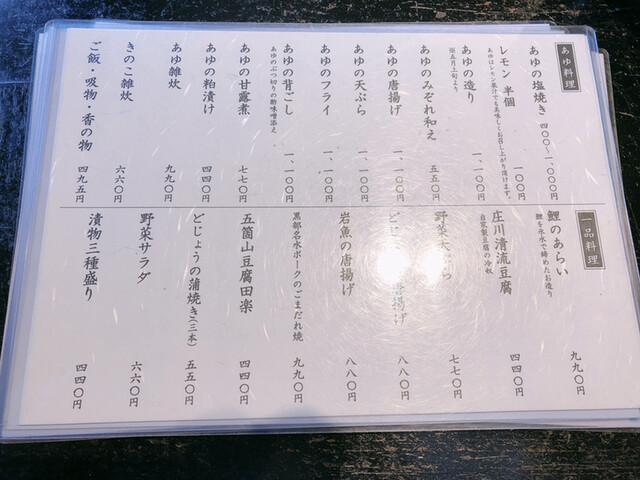 あゆ料理
あゆの塩焼き 四〇〇〜一、〇〇〇円
レモン 半個 一〇〇円
あゆはレモン果汁でも美味しくお召し上がり頂けます。
あゆの造り 一、一〇〇円
※五月上旬より
あゆのみぞれ和え 五五〇円
あゆの唐揚げ 一、一〇〇円
あゆの天ぷら 一、一〇〇円
あゆのフライ 一、一〇〇円
あゆの背ごし 一、一〇〇円
あゆのぶつ切りの酢味噌添え
あゆの甘露煮 七七〇円
あゆの粕漬け 四四〇円
あゆ雑炊 九九〇円
きのこ雑炊 六六〇円
ご飯・吸物・香の物 四九五円
一品料理
鯉のあらい 九九〇円
鯉を氷水で締めたお造り
庄川清流豆腐 四四〇円
自家製豆腐の冷奴
野菜天ぷら 七七〇円
どじょうの唐揚げ 八八〇円
岩魚の唐揚げ 八八〇円
黒部名水ポークのごまだれ焼 九九〇円
五箇山豆腐田楽 四四〇円
どじょうの蒲焼き(三本) 五五〇円
野菜サラダ 六六〇円
漬物三種盛り 四四〇円